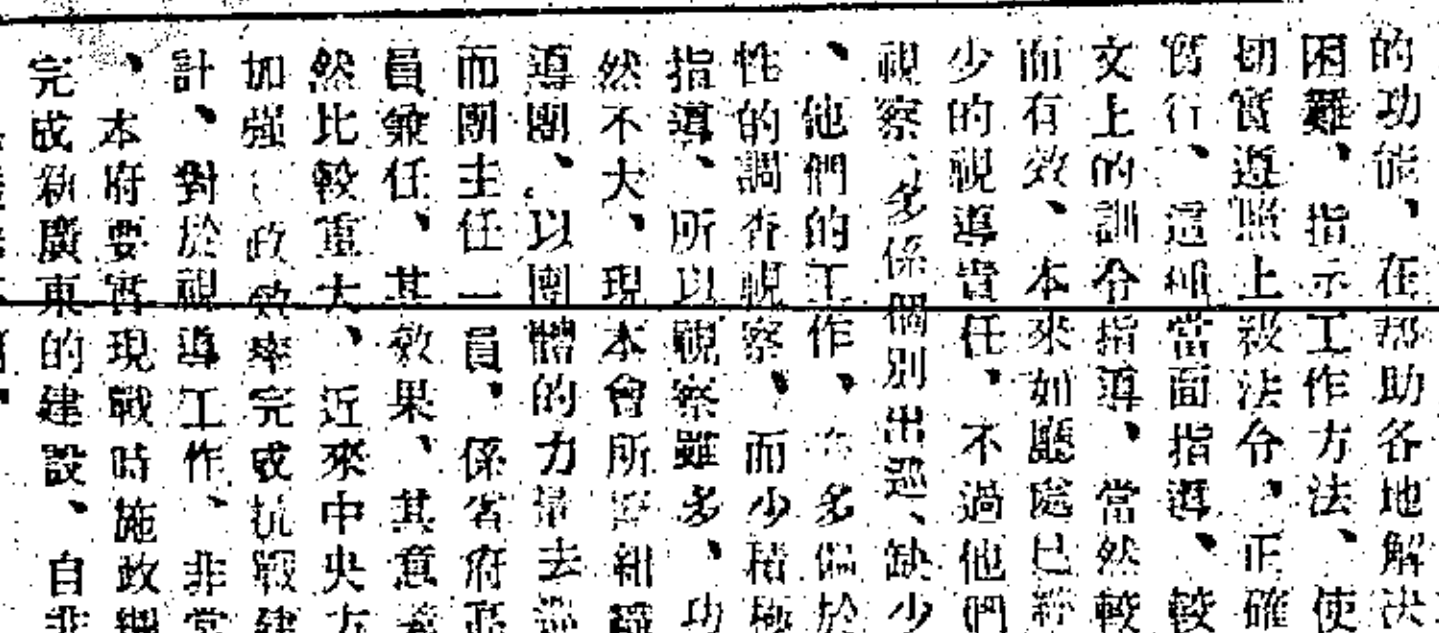 的功能、在帮助各地解決
困難、指示工作方法、使
切實遵照上級法令、正確
實行、這種當面指導、較
文上的訓令指導、當然較
而有效、本來如廳處已經
少的視導責任、不過他們
視察、多係個別出巡、缺少
、他們的工作、多偏於
性的調查視察、而少積極
指導、所以視察雖多、功
然不大、現本會所組織
導團、以團體的力量去巡
而團主任一員、係省府
員兼任、其效果、其意義
然比較重大、近來中央方
加强政效率完成抗戰建
計、對於視導工作、非常
、本府要實現戰時施政綱
完成新廣東的建設、自非